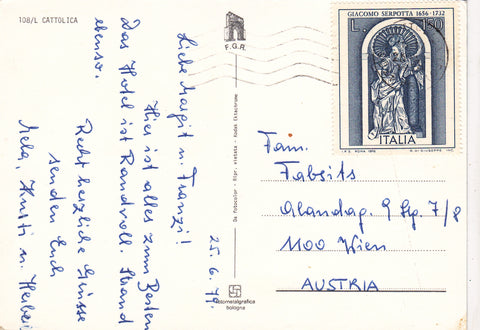 108/L CATTOLICA
F.G.R.
25. 6. 77.
Liebe Margit u. Franzi!
Hier ist alles zum Besten
Das Hotel ist Randvoll. Strand
ebenso.
Recht herzliche Grüsse
senden Euch
Mela, Kurti u. Herbert
Da fotocolor - Ripr. vietata - Kodak Ektachrome
fotometalgrafica
bologna
GIACOMO SERPOTTA 1656-1732
L. 150
ITALIA
Fam.
Fabsits
Alandag. 9 Stg. 7/8
1100 Wien
AUSTRIA